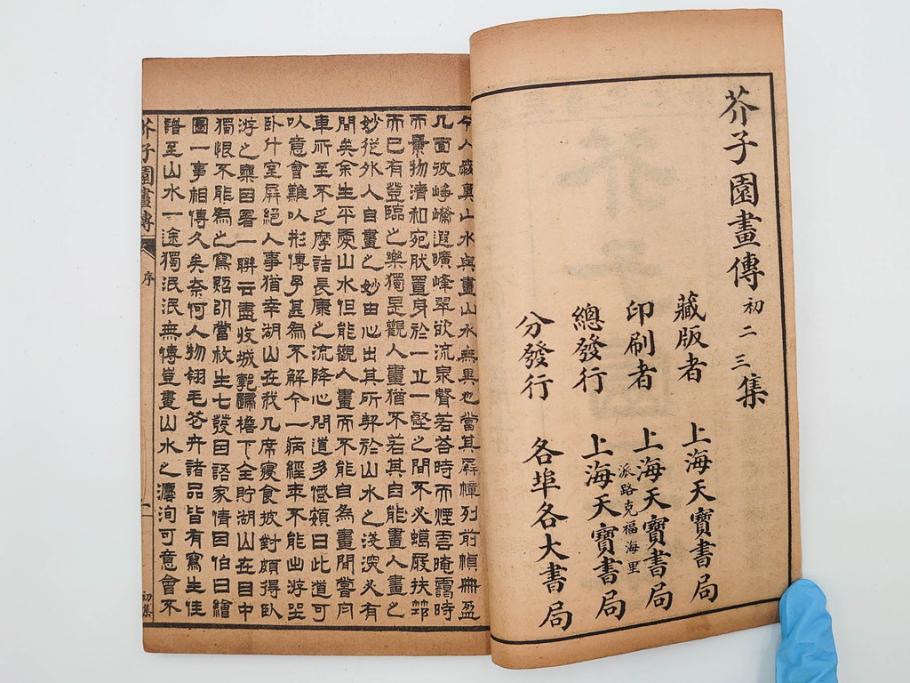 芥子園畫傳 初二三集
藏版者 上海天寶書局
印刷者 上海天寶書局
派路克福海里
總發行 上海天寶書局
分發行 各埠各大書局
今人愛真山水與畫山水無異也當其屏幛列前幀冊盈
几面彼崢嶸遐曠峰翠欲流泉聲若荅時而煙雲晻靄時
而景物清和宛然置身於一丘一壑之間不必蠟屐扶筇
而已有登臨之樂獨是觀人畫猶不若其自能畫人畫之
妙從外入自畫之妙由心出其所契於山水之淺深必有
間矣余生平愛山水但能觀人畫而不能自為畫間嘗舟
車所至不乏摩詰長康之流降心問道多蹙頞曰此道可
以意會難以形傳予甚為不解今一病經年不能出游坐
臥斗室屏絕人事猶幸湖山在我几席寢食披對頗得臥
游之樂因署一聯云盡收城郭歸檐下全貯湖山在目中
獨恨不能為之寫照以當枚生七發因語家倩因伯曰繪
圖一事相傳久矣奈何人物翎毛花卉諸品皆有寫生佳
譜至山水一途獨泯泯無傳豈畫山水之灋洵可意會不
芥子園畫傳 序 一 初集